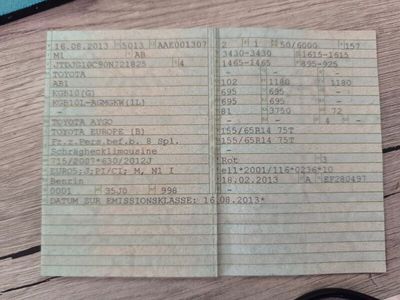 16.08.2013 5013 AAE001307
M1 AB
4
TOYOTA
AB1
KGB10(G)
KGB10L-AGMGKW(1L)
-
TOYOTA AYGO
TOYOTA EUROPE (B)
Fz.z.Pers.bef.b. 8 Spl.
Schräghecklimousine
715/2007*630/2012J
EURO5;J;PI/CI; M, N1 I
Benzin
0001 35J0 998
DATUM ZUR EMISSIONSKLASSE: 16.08.2013*
2 1 50/6000 157
3430-3430 1615-1615
1465-1465 895-925
- - -
102 1180 1180
695 695 -
695 695 -
81 3750 72
- - 4 -
155/65R14 75T
155/65R14 75T
-
Rot 3
e11*2001/116*0236*10
18.02.2013 A EF280497